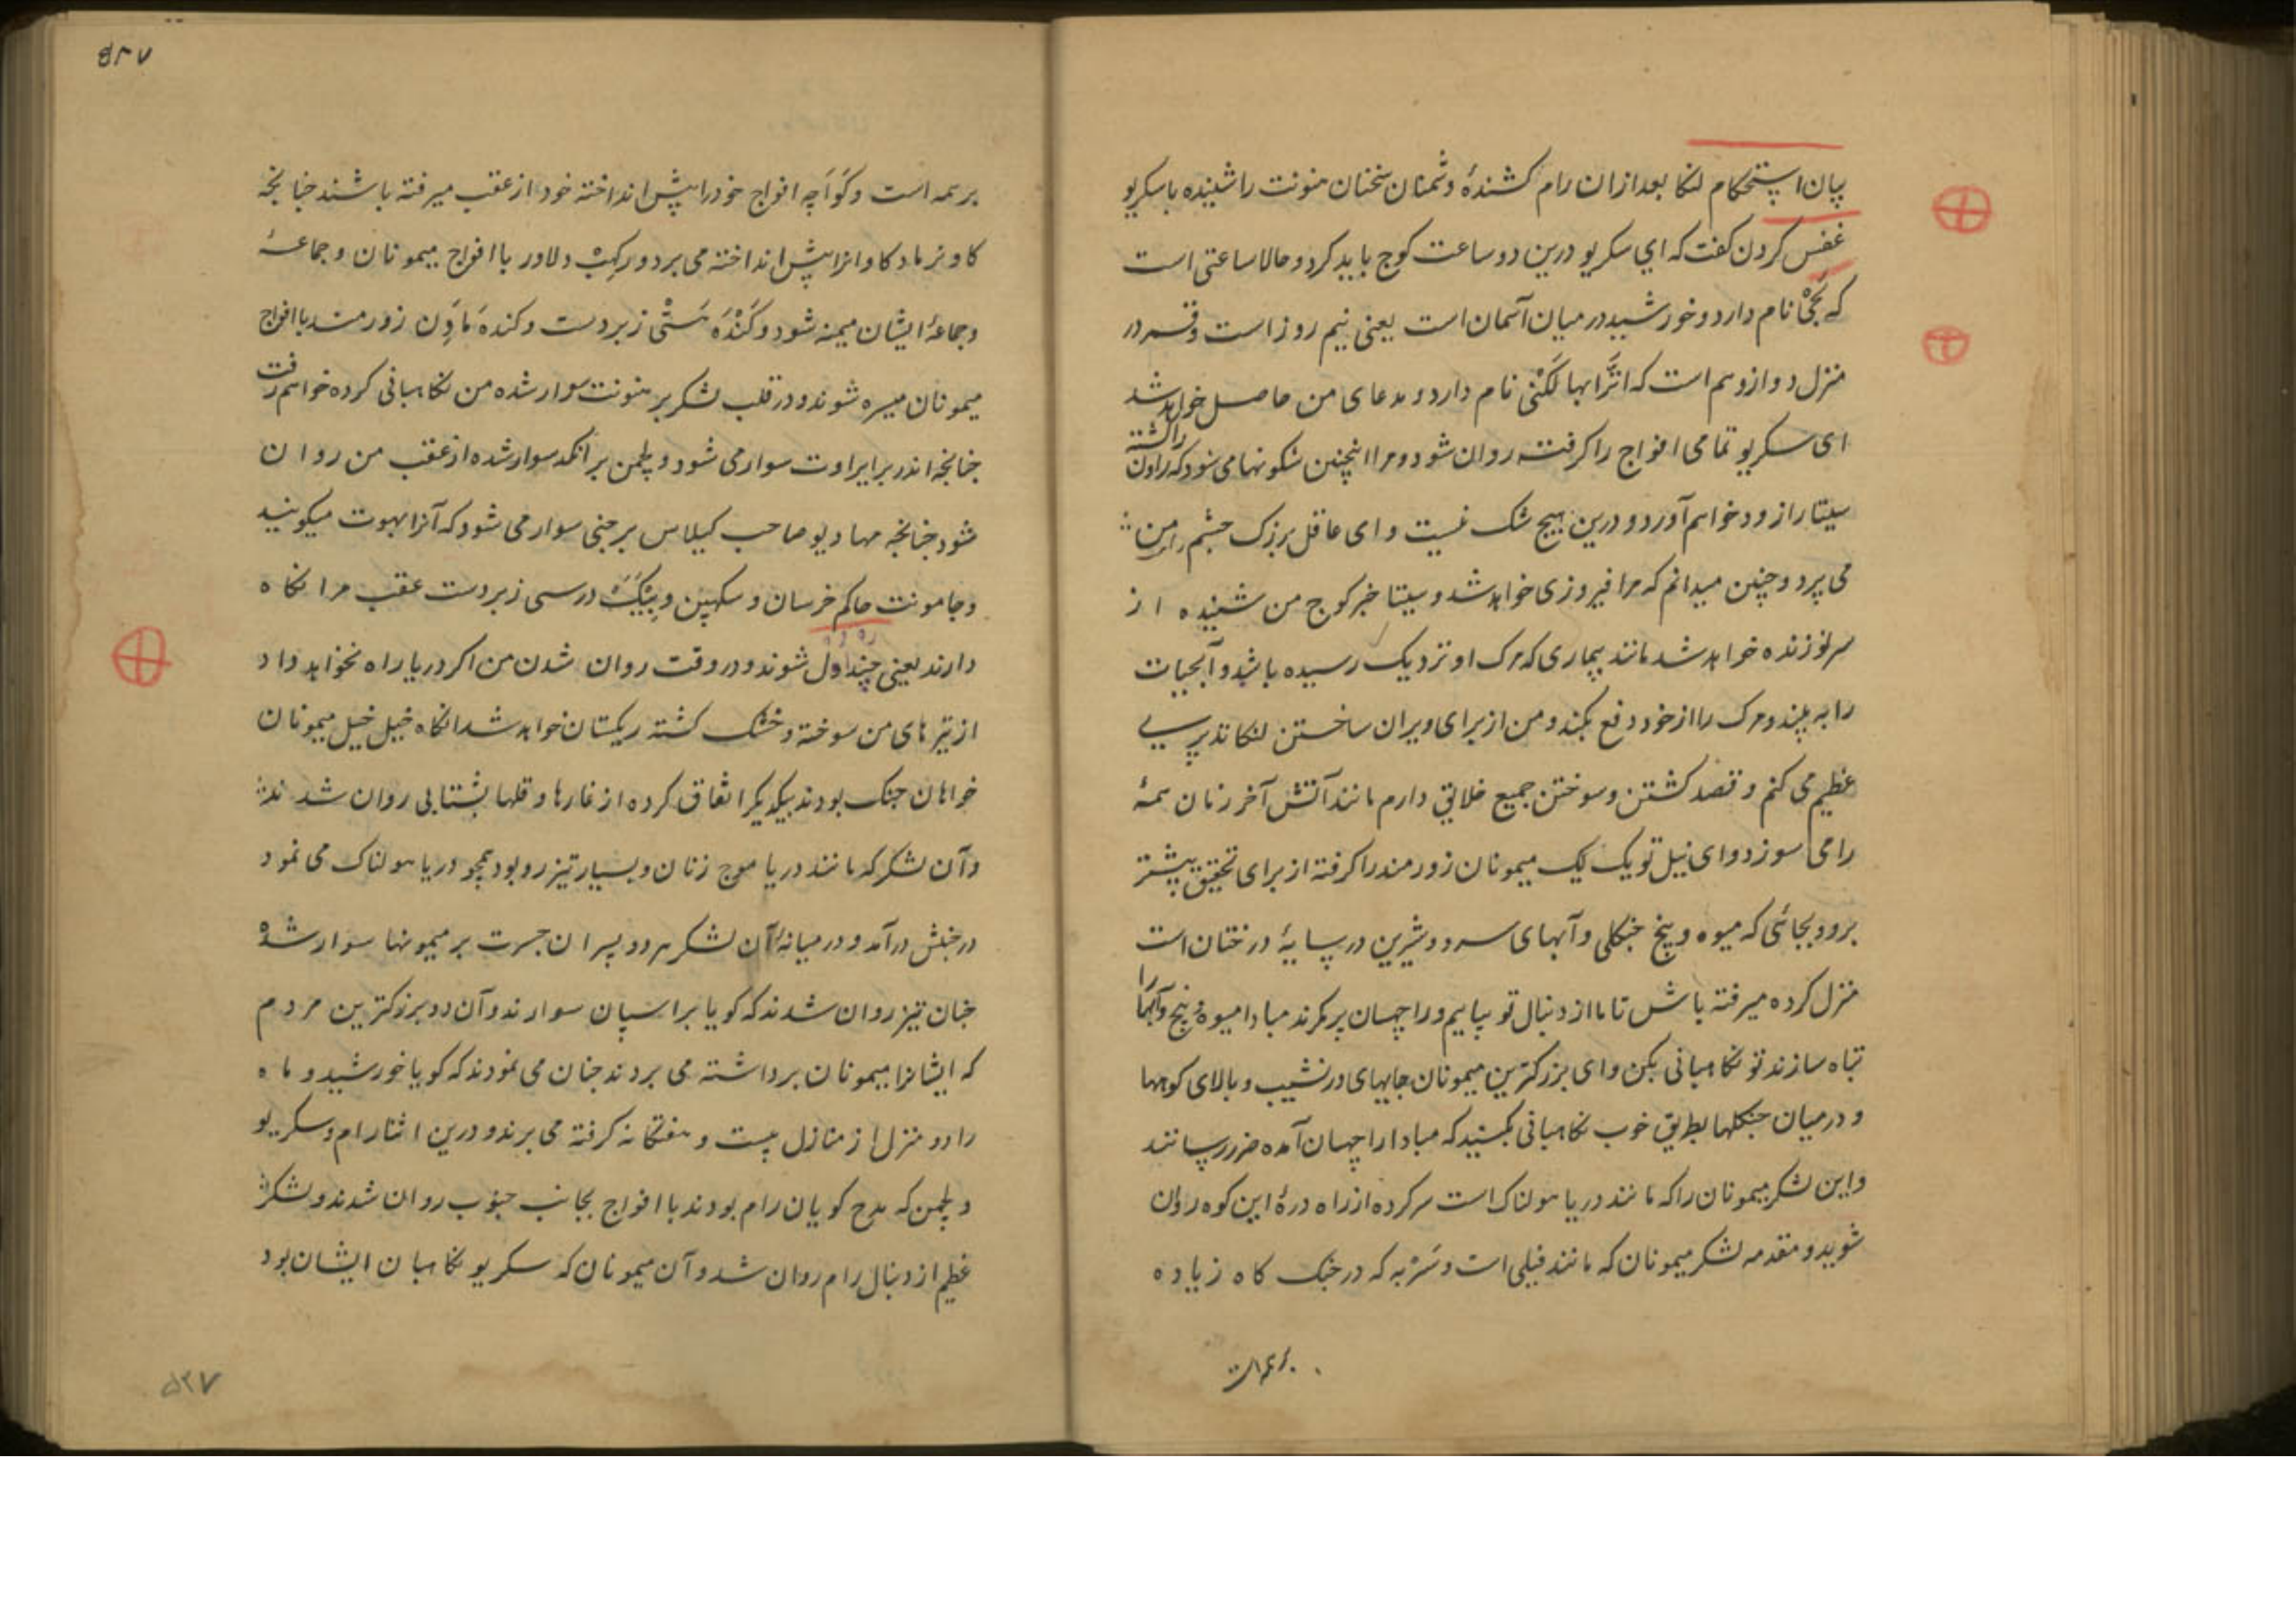 بیان استحکام لنکا بعد ازان رام کشندهٔ دشمنان سخنان هنونت را شنیده با سکریو
غضب کردن کفت که ای سکریو درین دو ساعت کوچ باید کرد و حالا ساعتی است
که نام دارد و خورشید در میان آسمان است یعنی نیم روز است و قمر در
منزل دوازدهم است که نام دارد و مدعای من حاصل خواهد شد
ای سکریو تمامی افواج را کرفته روان شود و مرا اینچنین شکونها می شود که راون را کشته
سیتا را زود خواهم آورد و درین هیچ شک نیست و ای عاقل بزرک چشم راست من
می پرد و چنین میدانم که مرا فیروزی خواهد شد و سیتا خبر کوچ من شنیده از
سر نو زنده خواهد شد مانند بیماری که مرک او نزدیک رسیده باشد و آبحیات
را به بیند و مرک را از خود دفع بکند و من از برای ویران ساختن لنکا تدبیری
عظیم می کنم و قصد کشتن و سوختن جمیع خلایق دارم مانند آتش آخر زمان همهٔ
را می سوزد و ای نیل تو یک لک میمونان زورمند را کرفته از برای تحقیق پیشتر
برو و بجائی که میوه و بیخ جنکلی و آبهای سرد و شیرین در سایهٔ درختان است
منزل کرده میرفته باش تا ما از دنبال تو بیاییم و راچهسان پر مکرند مبادا میوه و بیخ و آبها را
تباه سازند تو نکاهبانی بکن و ای بزرکترین میمونان جایهای در نشیب و بالای کوهها
و درمیان جنکلها بطریق خوب نکاهبانی بکنید که مبادا راچهسان آمده ضرر رسانند
و این لشکر میمونان را که مانند دریا هولناک است سر کرده از راه درهٔ این کوه روان
شوید و مقدمه لشکر میمونان که مانند فیلی است و که در جنک کاه زیاده
بر همه است
بر همه است و کواچه افواج خود را پیش انداخته خود از عقب میرفته باشند چنانچه
کاو نر ماده کاوانرا پیش انداخته می برد و رکهب دلاور با افواج میمونان و جماعهٔ
و جماعهٔ ایشان میمنه شود و کنده هستی زبردست و کنده مادن زورمند با افواج
میمونان میسره شوند و در قلب لشکر بر هنونت سوار شده من نکاهبانی کرده خواهم رفت
چنانچه اندر بر ایراوت سوار می شود و لچمن بر انکد سوار شده از عقب من روان
شود چنانچه مهادیو صاحب کیلاس بر جنی سوار می شود که آنرا بهوت میکویند
و جامونت حاکم خرسان و سکهین و درسی زبردست عقب مرا نکاه
دارند یعنی چنداول شوند و در وقت روان شدن من اکر دریا راه نخواهد داد
از تیرهای من سوخته و خشک کشته ریکستان خواهد شد انکاه خیل خیل میمونان
خواهان جنک بودند بیکدیکر اتفاق کرده از غارها و قلها بشتابی روان شدند
و آن لشکر که مانند دریا موج زنان و بسیار تیزرو بود همچو دریا هولناک می نمود
در جنبش درآمد و درمیانهٔ آن لشکر هر دو پسران جسرت بر میمونها سوار شده
چنان تیز روان شدند که کویا بر اسپان سوارند و آن دو بزرکترین مردم
که ایشانرا میمونان برداشته می بردند چنان می نمودند که کویا خورشید و ماه
را دو منزل از منازل بیست و هفتکانه کرفته می برند و درین اثنا رام و سکریو
و لچمن که مدح کویان رام بودند با افواج بجانب جنوب روان شدند و لشکر
عظیم از دنبال رام روان شد و آن میمونان که سکریو نکاهبان ایشان بود
۵۲۷